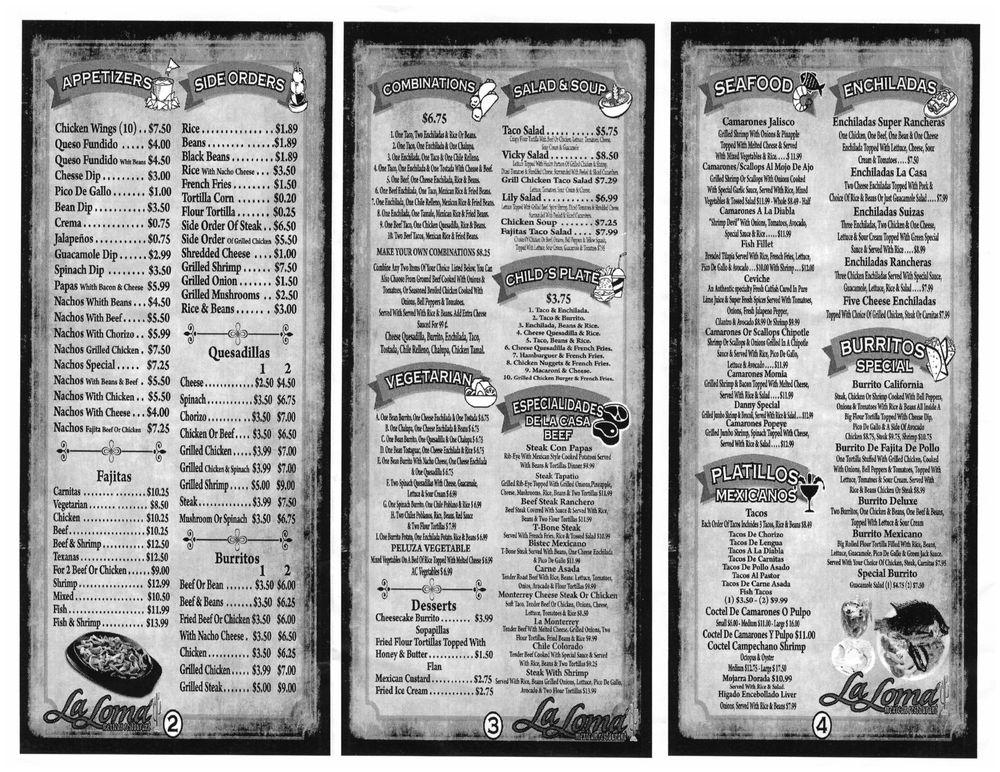 APPETIZERS
Chicken Wings (10) .. $7.50
Queso Fundido ..... $4.00
Queso Fundido Whit Beans $4.50
Chesse Dip ........ $3.00
Pico De Gallo ...... $1.00
Bean Dip ........... $3.50
Crema .............. $0.75
Jalapeños ........... $0.75
Guacamole Dip ..... $2.99
Spinach Dip ........ $3.50
Papas Whith Bacon & Cheese $5.99
Nachos Whith Beans ... $4.50
Nachos With Beef ..... $5.50
Nachos With Chorizo .. $5.99
Nachos Grilled Chicken . $7.50
Nachos Special ..... $7.25
Nachos With Beans & Beef . $5.50
Nachos With Chicken .. $5.50
Nachos With Cheese ... $4.00
Nachos Fajita Beef Or Chicken $7.25
Fajitas
Carnitas .................. $10.25
Vegetarian ................ $8.50
Chicken .................. $10.25
Beef ..................... $10.25
Beef & Shrimp ............ $12.50
Texanas .................. $12.50
For 2 Beef Or Chicken ...... $9.00
Shrimp .................. $12.99
Mixed ................... $10.50
Fish ..................... $11.99
Fish & Shrimp ............ $13.99
SIDE ORDERS
Rice ............... $1.89
Beans .............. $1.89
Black Beans ......... $1.89
Rice With Nacho Cheese ... $3.50
French Fries ........ $1.50
Tortilla Corn ....... $0.20
Flour Tortilla ....... $0.25
Side Order Of Steak .. $6.50
Side Order Of Grilled Chicken $5.50
Shredded Cheese .... $1.00
Grilled Shrimp ...... $7.50
Grilled Onion ....... $1.50
Grilled Mushrooms .. $2.50
Rice & Beans ....... $3.00
Quesadillas
1 2
Cheese ............ $2.50 $4.50
Spinach ........... $3.50 $6.75
Chorizo ........... $3.50 $7.00
Chicken Or Beef .... $3.50 $6.50
Grilled Chicken ..... $3.99 $7.00
Grilled Chicken & Spinach $3.99 $7.00
Grilled Shrimp ..... $5.00 $9.00
Steak .............. $3.99 $7.50
Mushroom Or Spinach $3.50 $6.75
Burritos
1 2
Beef Or Bean ....... $3.50 $6.00
Beef & Beans ....... $3.50 $6.25
Fried Beef Or Chicken $3.50 $6.00
With Nacho Cheese . $3.50 $6.50
Chicken ............ $3.50 $6.25
Grilled Chicken ..... $3.99 $7.00
Grilled Steak ....... $5.00 $9.00
La Loma
2
COMBINATIONS
$6.75
1. One Taco, Two Enchiladas & Rice Or Beans.
2. One Taco, One Enchilada & One Chalupa.
3. One Enchilada, One Taco & One Chile Relleno.
4. One Taco, One Enchilada & One Tostada With Cheese & Beef.
5. One Beef, One Cheese Enchilada, Rice & Beans.
6. One Beef Enchilada, One Taco, Mexican Rice & Fried Beans.
7. One Enchilada, One Chile Relleno, Mexican Rice & Fried Beans.
8. One Enchilada, One Tamale, Mexican Rice & Fried Beans.
9. One Beef Taco, One Chicken Quesadilla, Rice & Beans.
10. Two Beef Tacos, Mexican Rice & Fried Beans.
MAKE YOUR OWN COMBINATIONS $8.25
Combine Any Two Items Of Your Choice Listed Below, You Can
Also Choose From Ground Beef Cooked With Onions &
Tomatoes, Or Seasoned Broiled Chicken Cooked With
Onions, Bell Peppers & Tomatoes.
Served With Served With Rice & Beans. Add Extra Cheese
Sauced For 99 ¢.
Cheese Quesadilla, Burrito, Enchilada, Taco,
Tostada, Chile Relleno, Chalupa, Chicken Tamal.
VEGETARIAN
A. One Bean Burrito, One Cheese Enchilada & One Tostada $6.75
B. One Chalupa, One Cheese Enchilada & Beans $6.75
C. One Bean Burrito, One Quesadilla & One Chalupa $6.75
D. One Bean Tostaguac, One Cheese Enchilada & Rice $6.75
E. One Bean Burrito With Nacho Cheese, One Cheese Enchilada
& One Quesadilla $6.75
F. Two Spinach Quesadillas With Cheese, Guacamole,
Lettuce & Sour Cream $6.99
G. One Spinach Burrito, One Chile Poblano & Rice $6.99
H. Two Chiles Poblanos, Rice, Beans, Red Sauce
& Two Flour Tortillas $7.99
I. One Burrito Potato, One Enchilada Potato, Rice & Beans $6.99
PELUZA VEGETABLE
Mixed Vegetables On A Bed Of Rice Topped With Melted Cheese $6.99
AC Vegetables $6.99
Desserts
Cheesecake Burrito ........ $3.99
Sopapillas
Fried Flour Tortillas Topped With
Honey & Butter ............ $1.50
Flan
Mexican Custard ........... $2.75
Fried Ice Cream ........... $2.75
SALAD & SOUP
Taco Salad ........... $5.75
Vicky Salad .......... $8.50
Grill Chicken Taco Salad $7.29
Lettuce, Tomatoes, Sour Cream & Cheese.
Lily Salad ........... $6.99
Chicken Soup ........ $7.25
Fajitas Taco Salad .... $7.99
CHILD´S PLATE
$3.75
1. Taco & Enchilada.
2. Taco & Burrito.
3. Enchilada, Beans & Rice.
4. Cheese Quesadilla & Rice.
5. Taco, Beans & Rice.
6. Cheese Quesadilla & French Fries.
7. Hamburguer & French Fries.
8. Chicken Nuggets & French Fries.
9. Macaroni & Cheese.
10. Grilled Chicken Burger & French Fries.
ESPECIALIDADES
DE LA CASA
BEEF
Steak Con Papas
Rib-Eye With Mexican Style Cooked Potatoes Served
With Beans & Tortillas Dinner $9.99
Steak Tapatio
Grilled Rib-Eye Topped With Grilled Onions, Pineapple,
Cheese, Mushrooms, Rice, Beans & Two Tortillas $11.99
Beef Steak Ranchero
Beef Steak Covered With Sauce & Served With Rice,
Beans & Two Flour Tortillas $11.99
T-Bone Steak
Served With French Fries, Rice & Tossed Salad $10.99
Bistec Mexicano
T-Bone Steak Served With Beans, One Cheese Enchilada
& Pico De Gallo $11.99
Carne Asada
Tender Roast Beef With Rice, Beans, Lettuce, Tomatoes,
Onion, Avocado & Flour Tortillas $9.99
Monterrey Cheese Steak Or Chicken
Soft Taco, Tender Beef Or Chicken, Onions, Cheese,
Lettuce, Tomatoes & Rice $8.50
La Monterrey
Tender Beef With Melted Cheese, Grilled Onions, Two
Flour Tortillas, Fried Beans & Rice $9.99
Chile Colorado
Tender Beef Cooked With Special Sauce & Served
With Rice, Beans & Two Flour Tortillas $9.25
Steak With Shrimp
Served With Rice, Beans Grilled Onions, Lettuce, Pico De Gallo,
Avocado & Two Flour Tortillas $13.99
3
La Loma
SEAFOOD
Camarones Jalisco
Grilled Shrimp With Onions & Pineapple
Topped With Melted Cheese & Served
With Mixed Vegetables & Rice .... $ 11.99
Camarones/Scallops Al Mojo De Ajo
Grilled Shrimp Or Scallops With Onions Cooked
With Special Garlic Sauce, Served With Rice, Mixed
Vegetables & Tossed Salad $11.99 - Whole $8.49 - Half
Camarones A La Diabla
"Shrimp Devil" With Onions, Tomatoes, Avocado,
Special Sauce & Rice ..... $11.99
Fish Fillet
Breaded Tilapia Served With Rice, French Fries, Lettuce,
Pico De Gallo & Avocado ... $10.00 With Shrimp .... $12.00
Ceviche
An Authentic specialty Fresh Catfish Cured In Pure
Lime Juice & Super Fresh Spices Served With Tomatoes,
Onions, Fresh Jalapeno Pepper,
Cilantro & Avocado $8.99 Or Shrimp $9.99
Camarones Or Scallops Chipotle
Shrimp Or Scallops & Onions Grilled In A Chipotle
Sauce & Served With Rice, Pico De Gallo,
Lettuce & Avocado .... $11.99
Camarones Mornia
Grilled Shrimp & Bacon Topped With Melted Cheese,
Served With Rice & Salad .... $11.99
Danny Special
Grilled Jumbo Shrimp & Broccoli, Served With Rice & Salad .... $12.99
Camarones Popeye
Grilled Jumbo Shrimp, Spinach Topped With Cheese,
Served With Rice & Salad .... $12.99
PLATILLOS
MEXICANOS
Tacos
Each Order Of Tacos Includes 3 Tacos, Rice & Beans $8.49
Tacos De Chorizo
Tacos De Lengua
Tacos A La Diabla
Tacos De Carnitas
Tacos De Pollo Asado
Tacos Al Pastor
Tacos De Carne Asada
Fish Tacos
(1) $3.50 - (2) $9.99
Coctel De Camarones O Pulpo
Small $6.00 - Medium $11.00 - Large $ 16.00
Coctel De Camarones Y Pulpo $11.00
Coctel Campechano Shrimp
Octopus & Oyster
Medium $12.75 - Large $17.50
Mojarra Dorada $10.99
Served With Rice & Salad.
Higado Encebollado Liver
Onions, Served With Rice & Beans $7.99
ENCHILADAS
Enchiladas Super Rancheras
One Chicken, One Beef, One Bean & One Cheese
Enchilada Topped With Lettuce, Cheese, Sour
Cream & Tomatoes .... $7.50
Enchiladas La Casa
Two Cheese Enchiladas Topped With Pork &
Choice Of Rice & Beans Or Just Guacamole Salad .... $7.99
Enchiladas Suizas
Three Enchiladas, Two Chicken & One Cheese,
Lettuce & Sour Cream Topped With Green Special
Sauce & Served With Rice .... $8.99
Enchiladas Rancheras
Three Chicken Enchiladas Served With Special Sauce,
Guacamole, Lettuce, Rice & Salad .... $7.99
Five Cheese Enchiladas
Topped With Choice Of Grilled Chicken, Steak Or Carnitas $7.99
BURRITOS
SPECIAL
Burrito California
Steak, Chicken Or Shrimp Cooked With Bell Peppers,
Onions & Tomatoes With Rice & Beans All Inside A
Big Flour Tortilla Topped With Cheese Dip,
Pico De Gallo & A Side Of Avocado
Chicken $8.75, Steak $9.75, Shrimp $10.75
Burrito De Fajita De Pollo
One Tortilla Stuffed With Grilled Chicken, Cooked
With Onions, Bell Peppers & Tomatoes, Topped With
Lettuce, Tomatoes & Sour Cream. Served With
Rice & Beans Chicken Or Steak $8.99
Burrito Deluxe
Two Burritos, One Chicken & Beans, One Beef & Beans,
Topped With Lettuce & Sour Cream
Burrito Mexicano
Big Rolled Flour Tortilla Filled With Rice, Beans,
Lettuce, Guacamole, Pico De Gallo & Green Jack Sauce.
Served With Your Choice Of Chicken, Steak, Carnitas $7.95
Special Burrito
Guacamole Salad (1) $4.75 (2) $7.50
4
La Loma